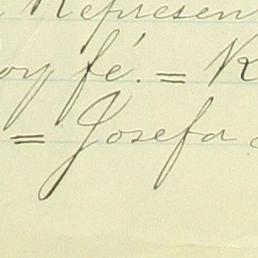 Represen
oy fé. = R
= Josefa